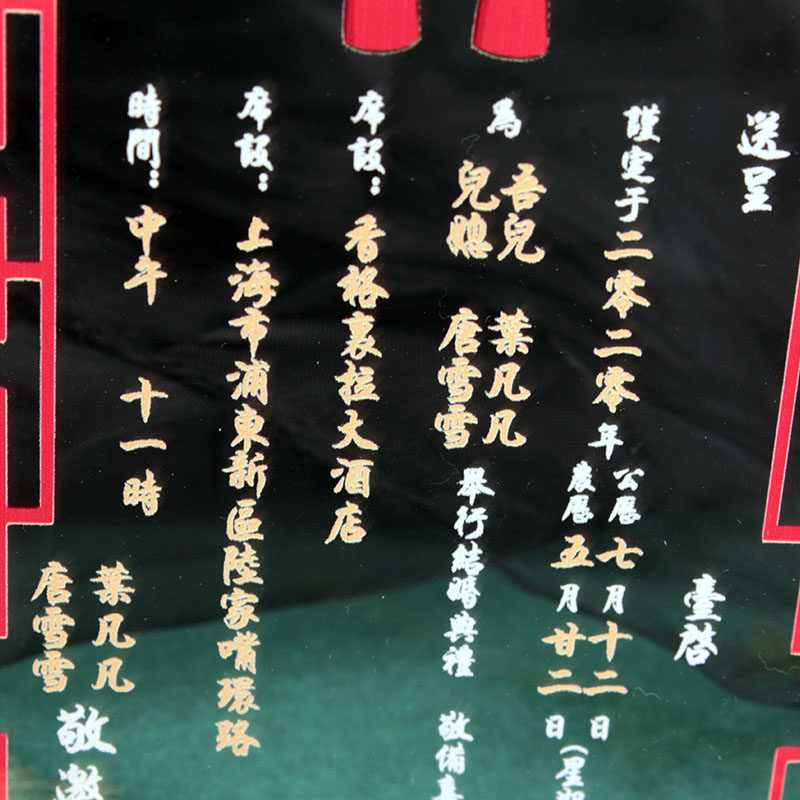 送呈
臺啓
謹定于二零二零年
公歷七月十二日
農歷五月廿二日(星期
為
吾兒 葉凡凡
兒媳 唐雪雪
舉行結婚典禮 敬備喜
席設：香格裏拉大酒店
席設：上海市浦東新區陸家嘴環路
時間：中午 十一時
葉凡凡
唐雪雪
敬邀